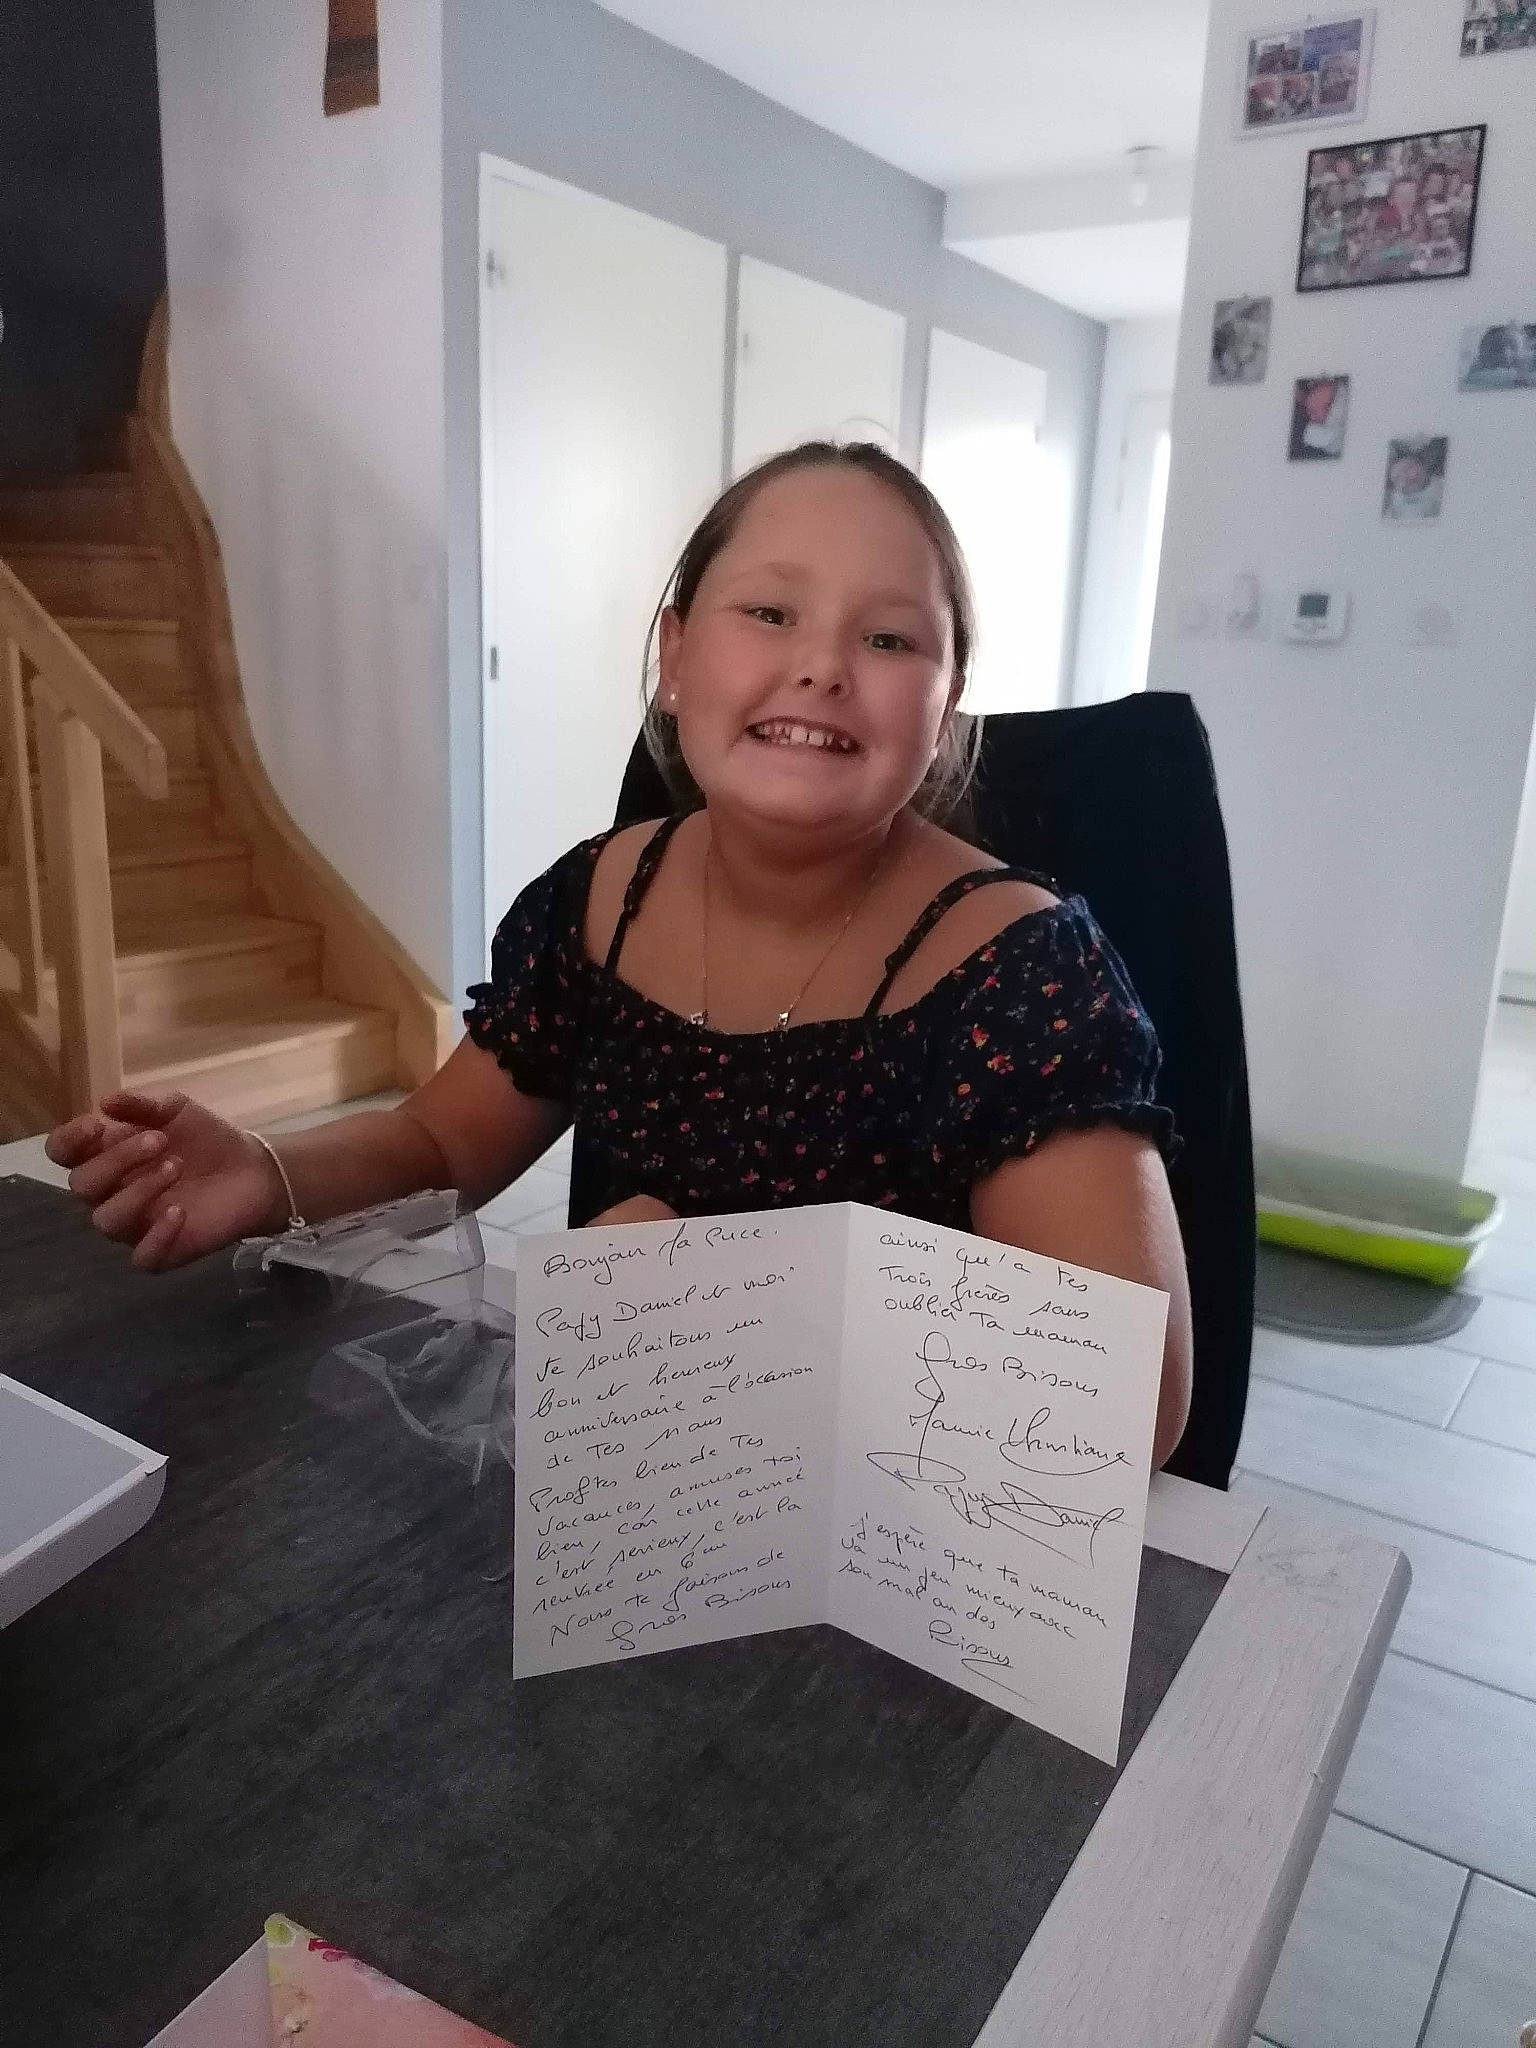 Bonjour Ma Puce.
Papy Daniel et moi
te souhaitons un
bon et heureux
anniversaire à l'occasion
de Tes 11 ans
Profites bien de Tes
vacances, amuses toi
bien, car cette année
c'est serieux, c'est la
rentrée en 6 em
Nous te faisons de
Gros Bisous
ainsi qu'a tes
Trois frères sans
oublier Ta maman
Gros Bisous
Mamie Christiane
Papy Daniel
j'espère que ta maman
va un peu mieux avec
son mal au dos
Bisous